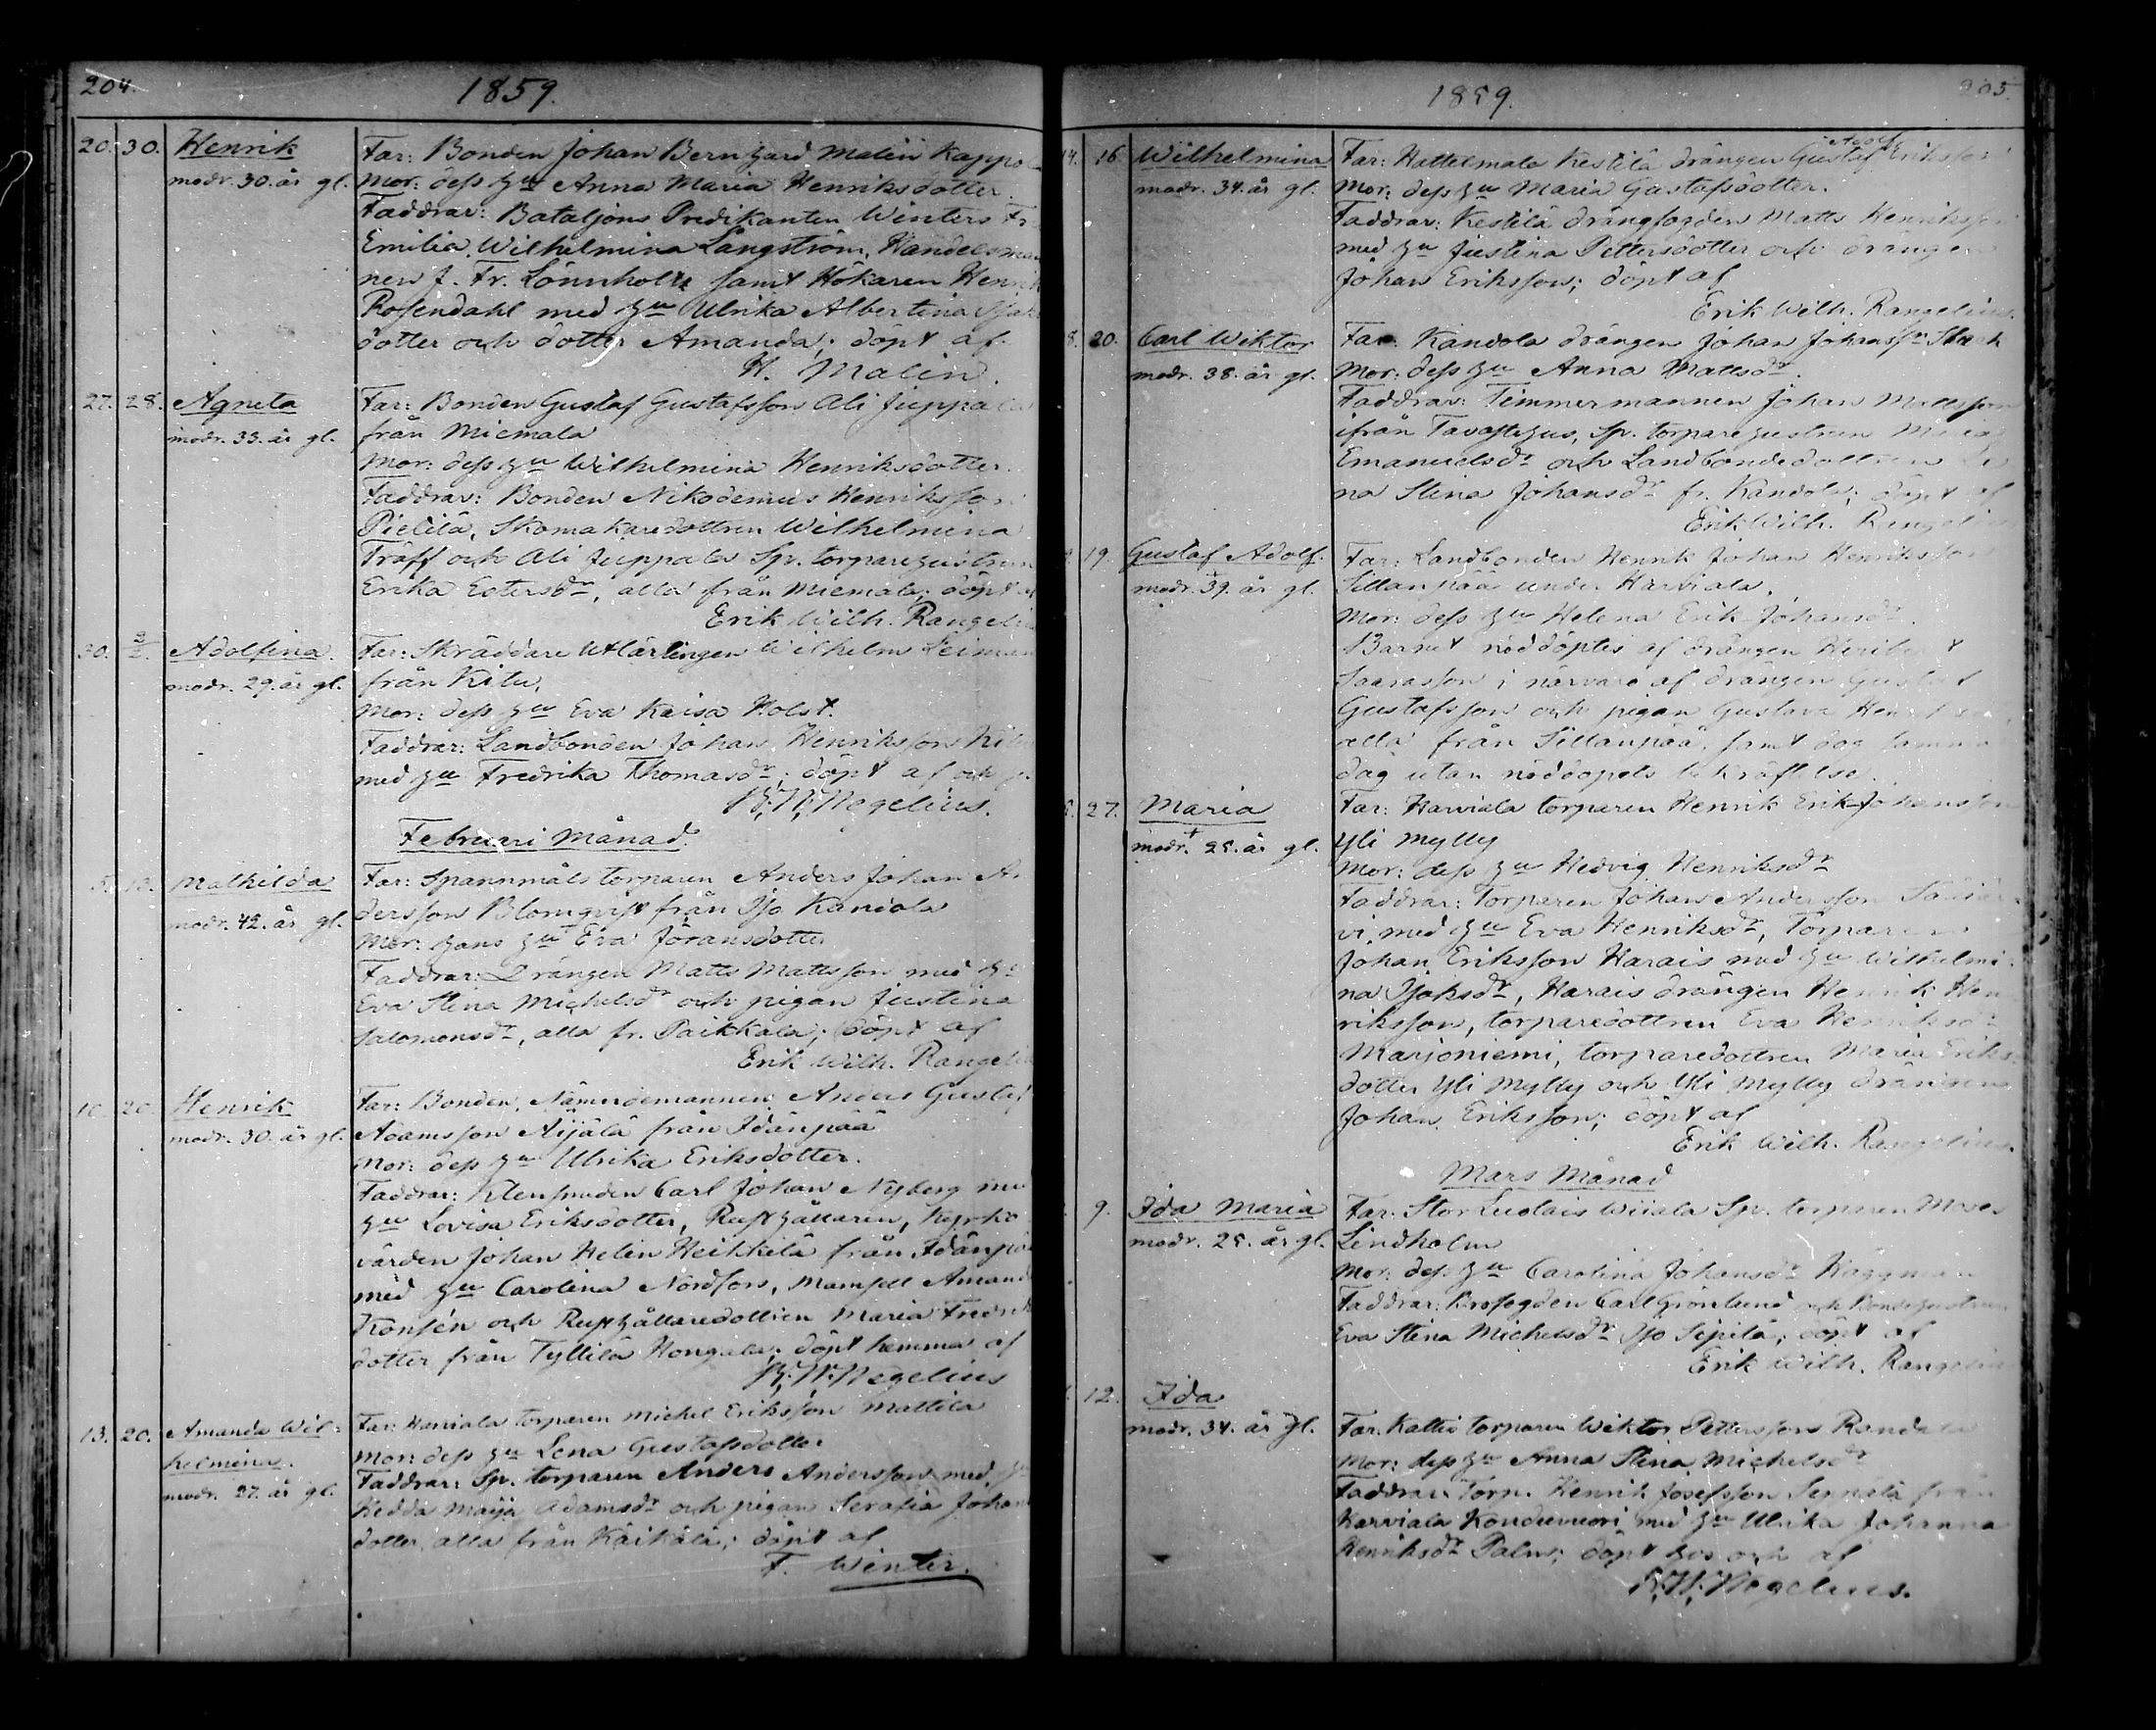 204.
1859.
20. 30. Henrik
modr. 30. år gl.
Far: Bonden Johan Bernhard Malin
Mor: dess hu Anna Maria Henriksdotter.
Faddrar: Bataljons Predikanten Winters
Emilia Wilhelmina Långström, Handelsman
nen J. Fr. Lönnholtz samt Hökaren Henrik
Rosendahl med hu Ulrika Albertina
dotter och dotter Amanda; döpt af
H. Malin.
27. 28. Agneta
modr. 33. år gl.
Far: Bonden Gustaf Gustafsson Ali Juppala
från Miemala
Mor: dess hu Wilhelmina Henriksdotter.
Faddrar: Bonden Nikodemus Henriksson
Pietilä, Skomakaredottren Wilhelmina
Träff och Ali Juppala Sp. torparehustrun
Erika Estersdr, alla från Miemala; döpt af
Erik Wilh. Rangelius
30. 2/2. Adolfina.
modr. 29. år gl.
Far: Skräddare Utlärlingen Wilhelm Leiman
från Kilu.
Mor: dess hu Eva Kaisa Holst.
Faddrar: Landbonden Johan Henriksson
med hu Fredrika Thomasdr; döpt af och
Negelius.
Februari Månad.
Mathilda
modr. 42. år gl.
Far: Spannmåls torparen Anders Johan An
dersson Blomqvist från Iso Kandola
Mor: hans hu Eva Göransdotter
Faddrar: Drängen Matts Mattsson med hu
Eva Stina Michelsdr och pigan Justina
Salomonsdr, alla fr. Paikkala; döpt af
Erik Wilh. Rangelius
10. 20. Henrik
modr. 30. år gl.
Far: Bonden, Nämndemannen Anders Gustaf
Adamsson Äijälä från Idänpää
Mor: dess hu Ulrika Eriksdotter.
Faddrar: Klensmeden Carl Johan Nyberg med
hu Lovisa Eriksdotter, Rusthållaren, Kyrko
värden Johan Helin Heikkilä från Idänpää
med hu Carolina Nordfors, Mamsell Amanda
Konsén och Rusthållaredottren Maria Fredriks
dotter från Tyllilä Hongala; döpt hemma af
Negelius
13. 20. Amanda Wil-
helmina.
modr. 27. år gl.
Far: Harviala torparen Michel Eriksson Mattila
Mor: dess hu Lena Gustafsdotter
Faddrar: Sp. torparen Anders Andersson med hu
Hedda Maija Adamsdr och pigan Serafia Johans
dotter, alla från Käikälä; döpt af
F. Winter.
205.
1859.
14. 16. Wilhelmina
modr. 34. år gl.
Adolf
Far: Hattelmala Kestilä drängen Gustaf Eriksson
Mor: dess hu Maria Gustafsdotter.
Faddrar: Kestilä drängfogden Matts Henriksson
med hu Justina Pettersdotter och drängen
Johan Eriksson; döpt af
Erik Wilh. Rangelius.
8. 20. Carl Wiktor
modr. 38. år gl.
Far: Kandola drängen Johan Johansson Stark
Mor: dess hu Anna Mattsdr.
Faddrar: Timmermannen Johan Mattsson
ifrån Tavastehus, Sp. torparehustrun Maria
Emanuelsdr och Landbondedottren Le
na Stina Johansdr fr. Kandola; döpt af
Erik Wilh. Rangelius
19. Gustaf Adolf.
modr. 39. år gl.
Far: Landbonden Henrik Johan Henriksson
Sillanpää under Harviala.
Mor: dess hu Helena Erik Johansdr.
Barnet nöddöptes af drängen Heribert
Isaksson i närvaro af drängen Gustaf
Gustafsson och pigan Gustava
alla från Sillanpää, samt dog samma
dag utan nöddopets bekräftelse.
27. Maria
modr. 25. år gl.
Far: Harviala torparen Henrik Erik Johansson
Yli Mylly
Mor: dess hu Hedvig Henriksdr
Faddrar: Torparen Johan Andersson
vi, med hu Eva Henriksdr, Torparen
Johan Eriksson Harais med hu Wilhelmi
na Isaksdr, Harais drängen Henrik Hen
riksson, torparedottren Eva Henriksdr
Marjoniemi, torparedottren Maria Eriks
dotter Yli Mylly och Yli Mylly drängen
Johan Eriksson; döpt af
Erik Wilh. Rangelius.
Mars Månad
9. Ida Maria
modr. 25. år gl.
Far: Stor Luolais Wiiala Sp. torparen Moses
Lindholm
Mor: dess hu Carolina Johansdr Häggman
Faddrar: Brofogden Carl Grönlund och Bondehustrun
Eva Stina Michelsdr Iso Sipilä; döpt af
Erik Wilh. Rangelius
12. Ida
modr. 34. år gl.
Far: Kattis torparen Wiktor Pettersson Randala
Mor: dess hu Anna Stina Michelsdr
Faddrar: Torp. Henrik Josefsson Seppälä från
Harviala Kondiovuori med hu Ulrika Johanna
Henriksdr Palm; döpt hos och af
Negelius.